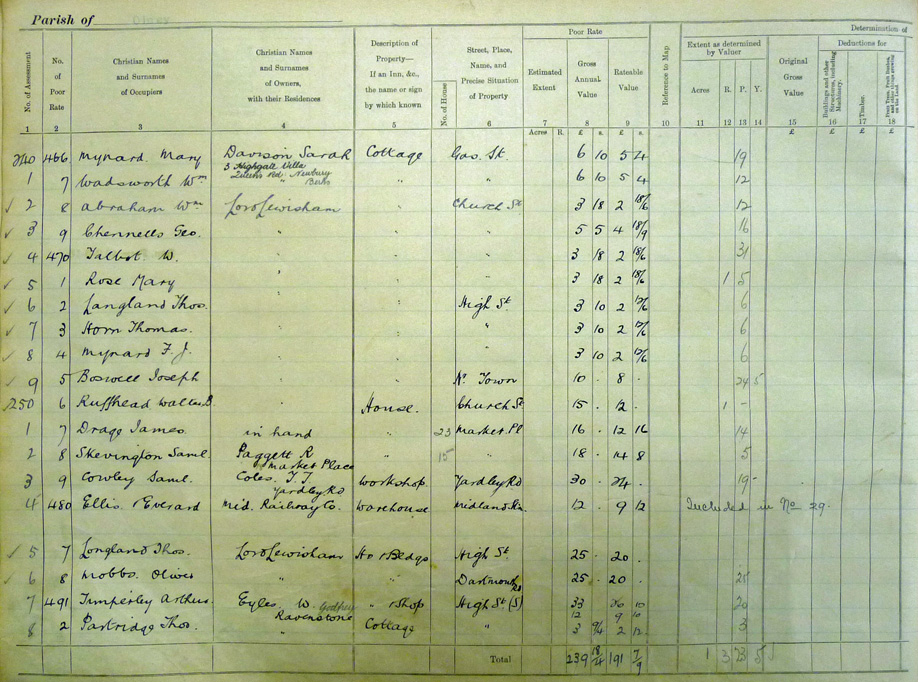 Parish of Olney
Poor Rate
Determination of
No. of Assessment
No. of Poor Rate
Christian Names and Surnames of Occupiers
Christian Names and Surnames of Owners, with their Residences
Description of Property— If an Inn, &c., the name or sign by which known
No. of House
Street, Place, Name, and Precise Situation of Property
Estimated Extent
Gross Annual Value
Rateable Value
Reference to Map
Extent as determined by Valuer
Acres R. P. Y.
Original Gross Value
Deductions for
Buildings and other Structures, including Machinery.
Timber.
Fruit Trees, Fruit Bushes, and other things growing on the Land
1 2 3 4 5 6 7 8 9 10 11 12 13 14 15 16 17 18
Acres R. £ s. £ s. £ £ £ £
240 466 Mynard Mary Davison Sarah Cottage Gas. St 6 10 5 4 19
3 Highgate Villa
Queens Rd Newbury
Berks
1 7 Wadsworth Wm " " " 6 10 5 4 12
2 8 Abraham Wm Lord Lewisham " Church St 3 18 2 18/6 12
3 9 Chennells Geo. " " " 5 5 4 18/9 16
4 470 Talbot W. " " " 3 18 2 18/6 31
5 1 Rose Mary " " " 3 18 2 18/6 1 5
6 2 Langland Thos. " " High St. 3 10 2 12/6 6
7 3 Horn Thomas. " " " 3 10 2 12/6 6
8 4 Mynard F. J. " " " 3 10 2 12/6 6
9 5 Boswell Joseph " " Nr Town 10 . 8 . 24 5
250 6 Ruffhead Walter B. " House. Church St 15 . 12 . 1 -
1 7 Drage James. in hand " 23 Market Pl 16 . 12 16 14
2 8 Skevington Saml. Paggett R " 15 " 18 . 14 8 5
Market Place
3 9 Cowley Saml. Coles. T. J Workshop Yardley Rd 30 . 24 . 19 -
Yardley Rd
4 480 Ellis & Everard Mid. Railway Co. Warehouse Midland Stn. 12 . 9 12 Included in No 29.
5 7 Longland Thos. Lord Lewisham Ho & Bldgs High St. 25 . 20 .
6 8 Mobbs. Oliver " " Dartmouth Rd 25 . 20 . 25
7 491 Timperley Arthur. Eyles. W. Godfrey " & Shop High St (S) 33 26 10 20
Ravenstone 12 9 12
8 2 Partridge Thos. Cottage " 3 9/4 2 12 3
Total 239 18/4 191 7/9 1 3 23 5